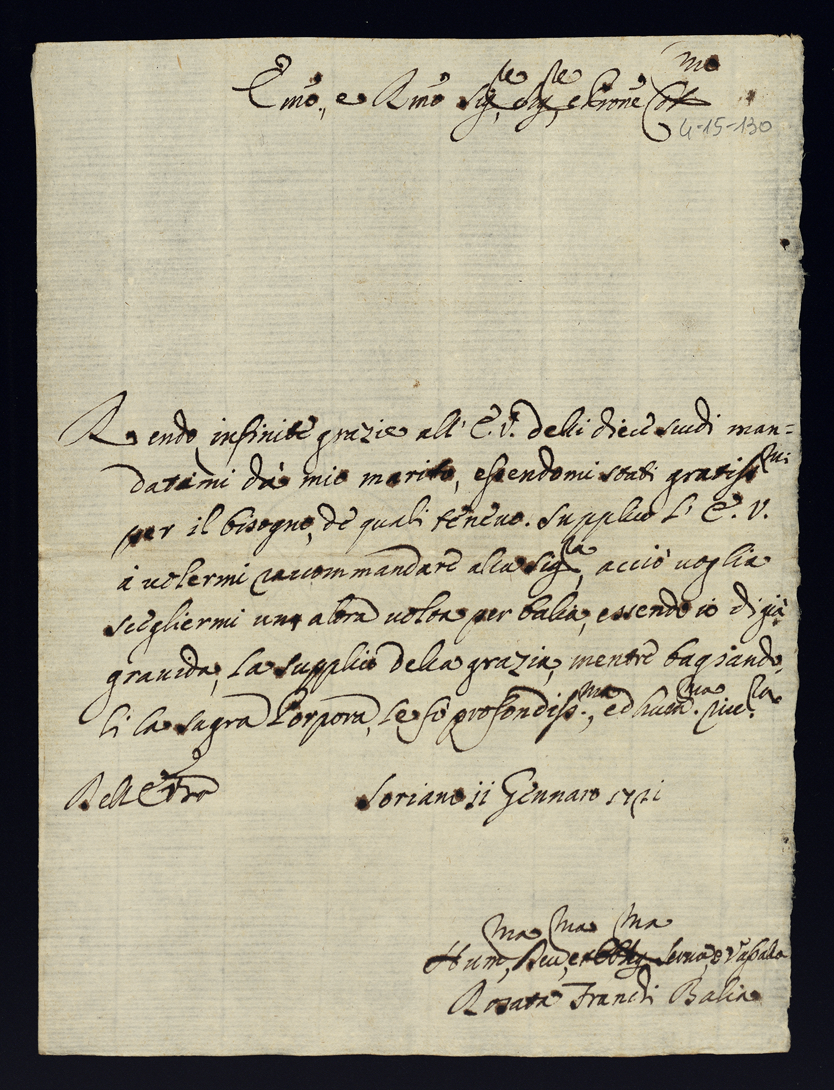 Emo, e Rmo Sigre, Sigre, e Prone Colmo
4-15-130
Rendo infinite grazie all' E. V. delli dieci scudi man=
datimi da mio marito, essendomi stati gratissmi
per il bisogno, de quali tenevo. Supplico L' E. V.
à volermi raccommandare alla Sigra, acciò voglia
sciegliermi un altra volta per balia, essendo io di già
gravida, La supplico della grazia, mentre bagiando
li la sagra Porpora, le fò profondissma, ed humma rivza
Dell' E. Vra
Soriano 11 Gennaro 1721
Humma, Devma, et Obligma Serva, e Vassalla
Rosata Franchi Balia